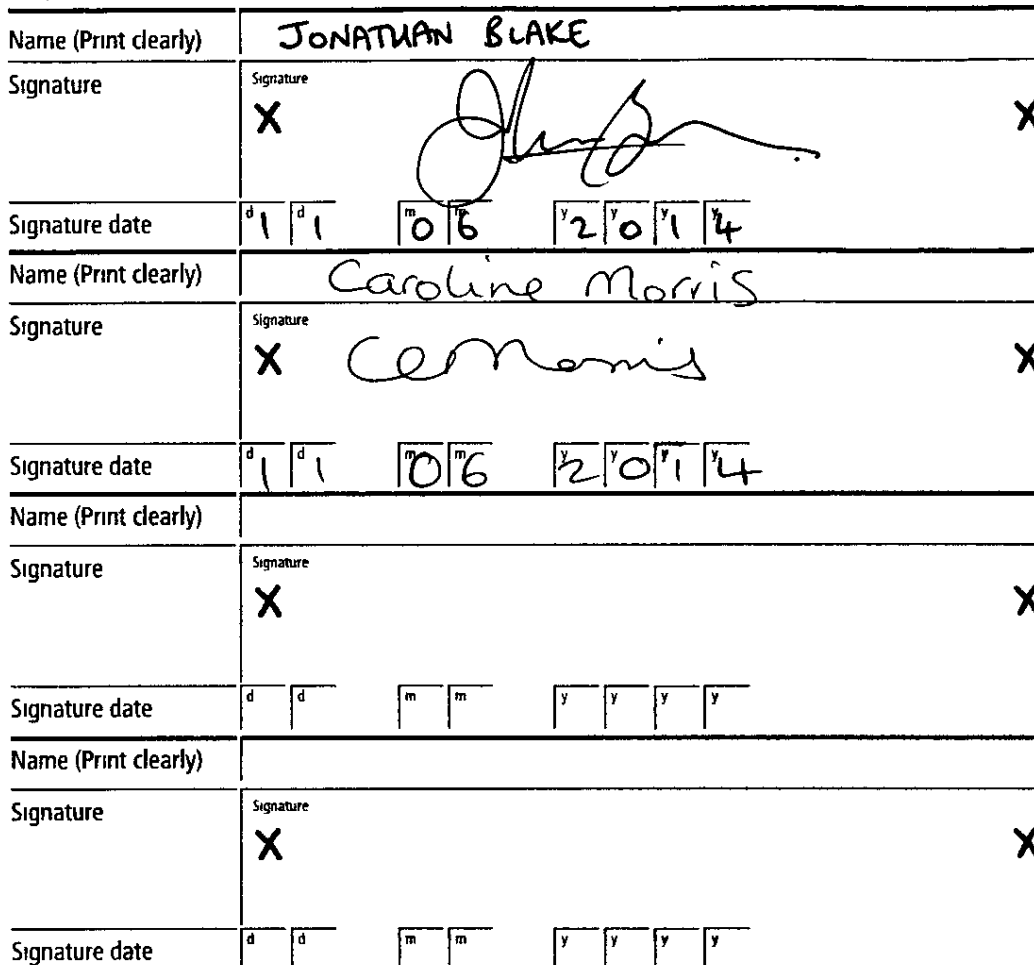 Name (Print clearly) JONATHAN BLAKE
Signature Signature
X X
Signature date d 1 d 1 m 0 m 6 y 2 y 0 y 1 y 4
Name (Print clearly) Caroline Morris
Signature Signature
X CEMorris X
Signature date d 1 d 1 m 0 m 6 y 2 y 0 y 1 y 4
Name (Print clearly)
Signature Signature
X X
Signature date d d m m y y y y
Name (Print clearly)
Signature Signature
X X
Signature date d d m m y y y y